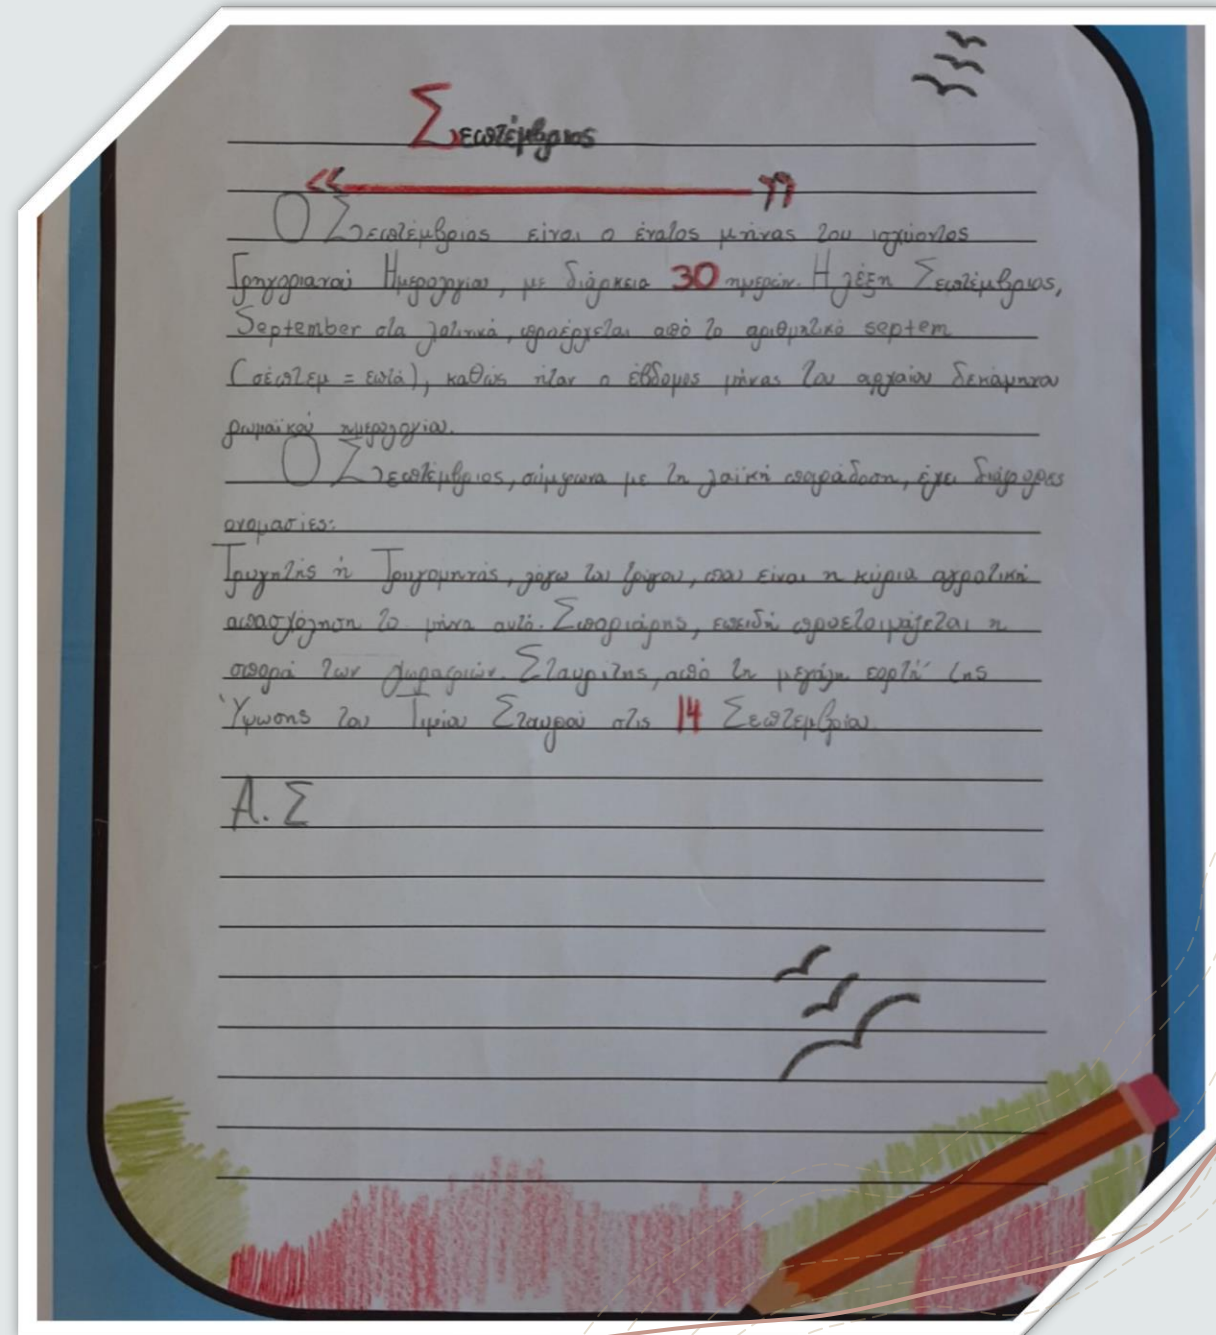 Σεπτέμβριος
Ο Σεπτέμβριος είναι ο ένατος μήνας του ισχύοντος
Γρηγοριανού Ημερολογίου, με διάρκεια 30 ημερών. Η λέξη Σεπτέμβριος,
September στα λατινικά, προέρχεται από το αριθμητικό septem
(σέπτεμ = επτά), καθώς ήταν ο έβδομος μήνας του αρχαίου δεκάμηνου
ρωμαϊκού ημερολογίου.
Ο Σεπτέμβριος, σύμφωνα με τη λαϊκή παράδοση, έχει διάφορες
ονομασίες:
Τρυγητής ή Τρυγομηνάς, λόγω του τρύγου, που είναι η κύρια αγροτική
απασχόληση το μήνα αυτό. Σποριάρης, επειδή προετοιμάζεται η
σπορά των χωραφιών. Σταυρίτης, από τη μεγάλη εορτή της
Ύψωσης του Τιμίου Σταυρού στις 14 Σεπτεμβρίου.
Α. Σ